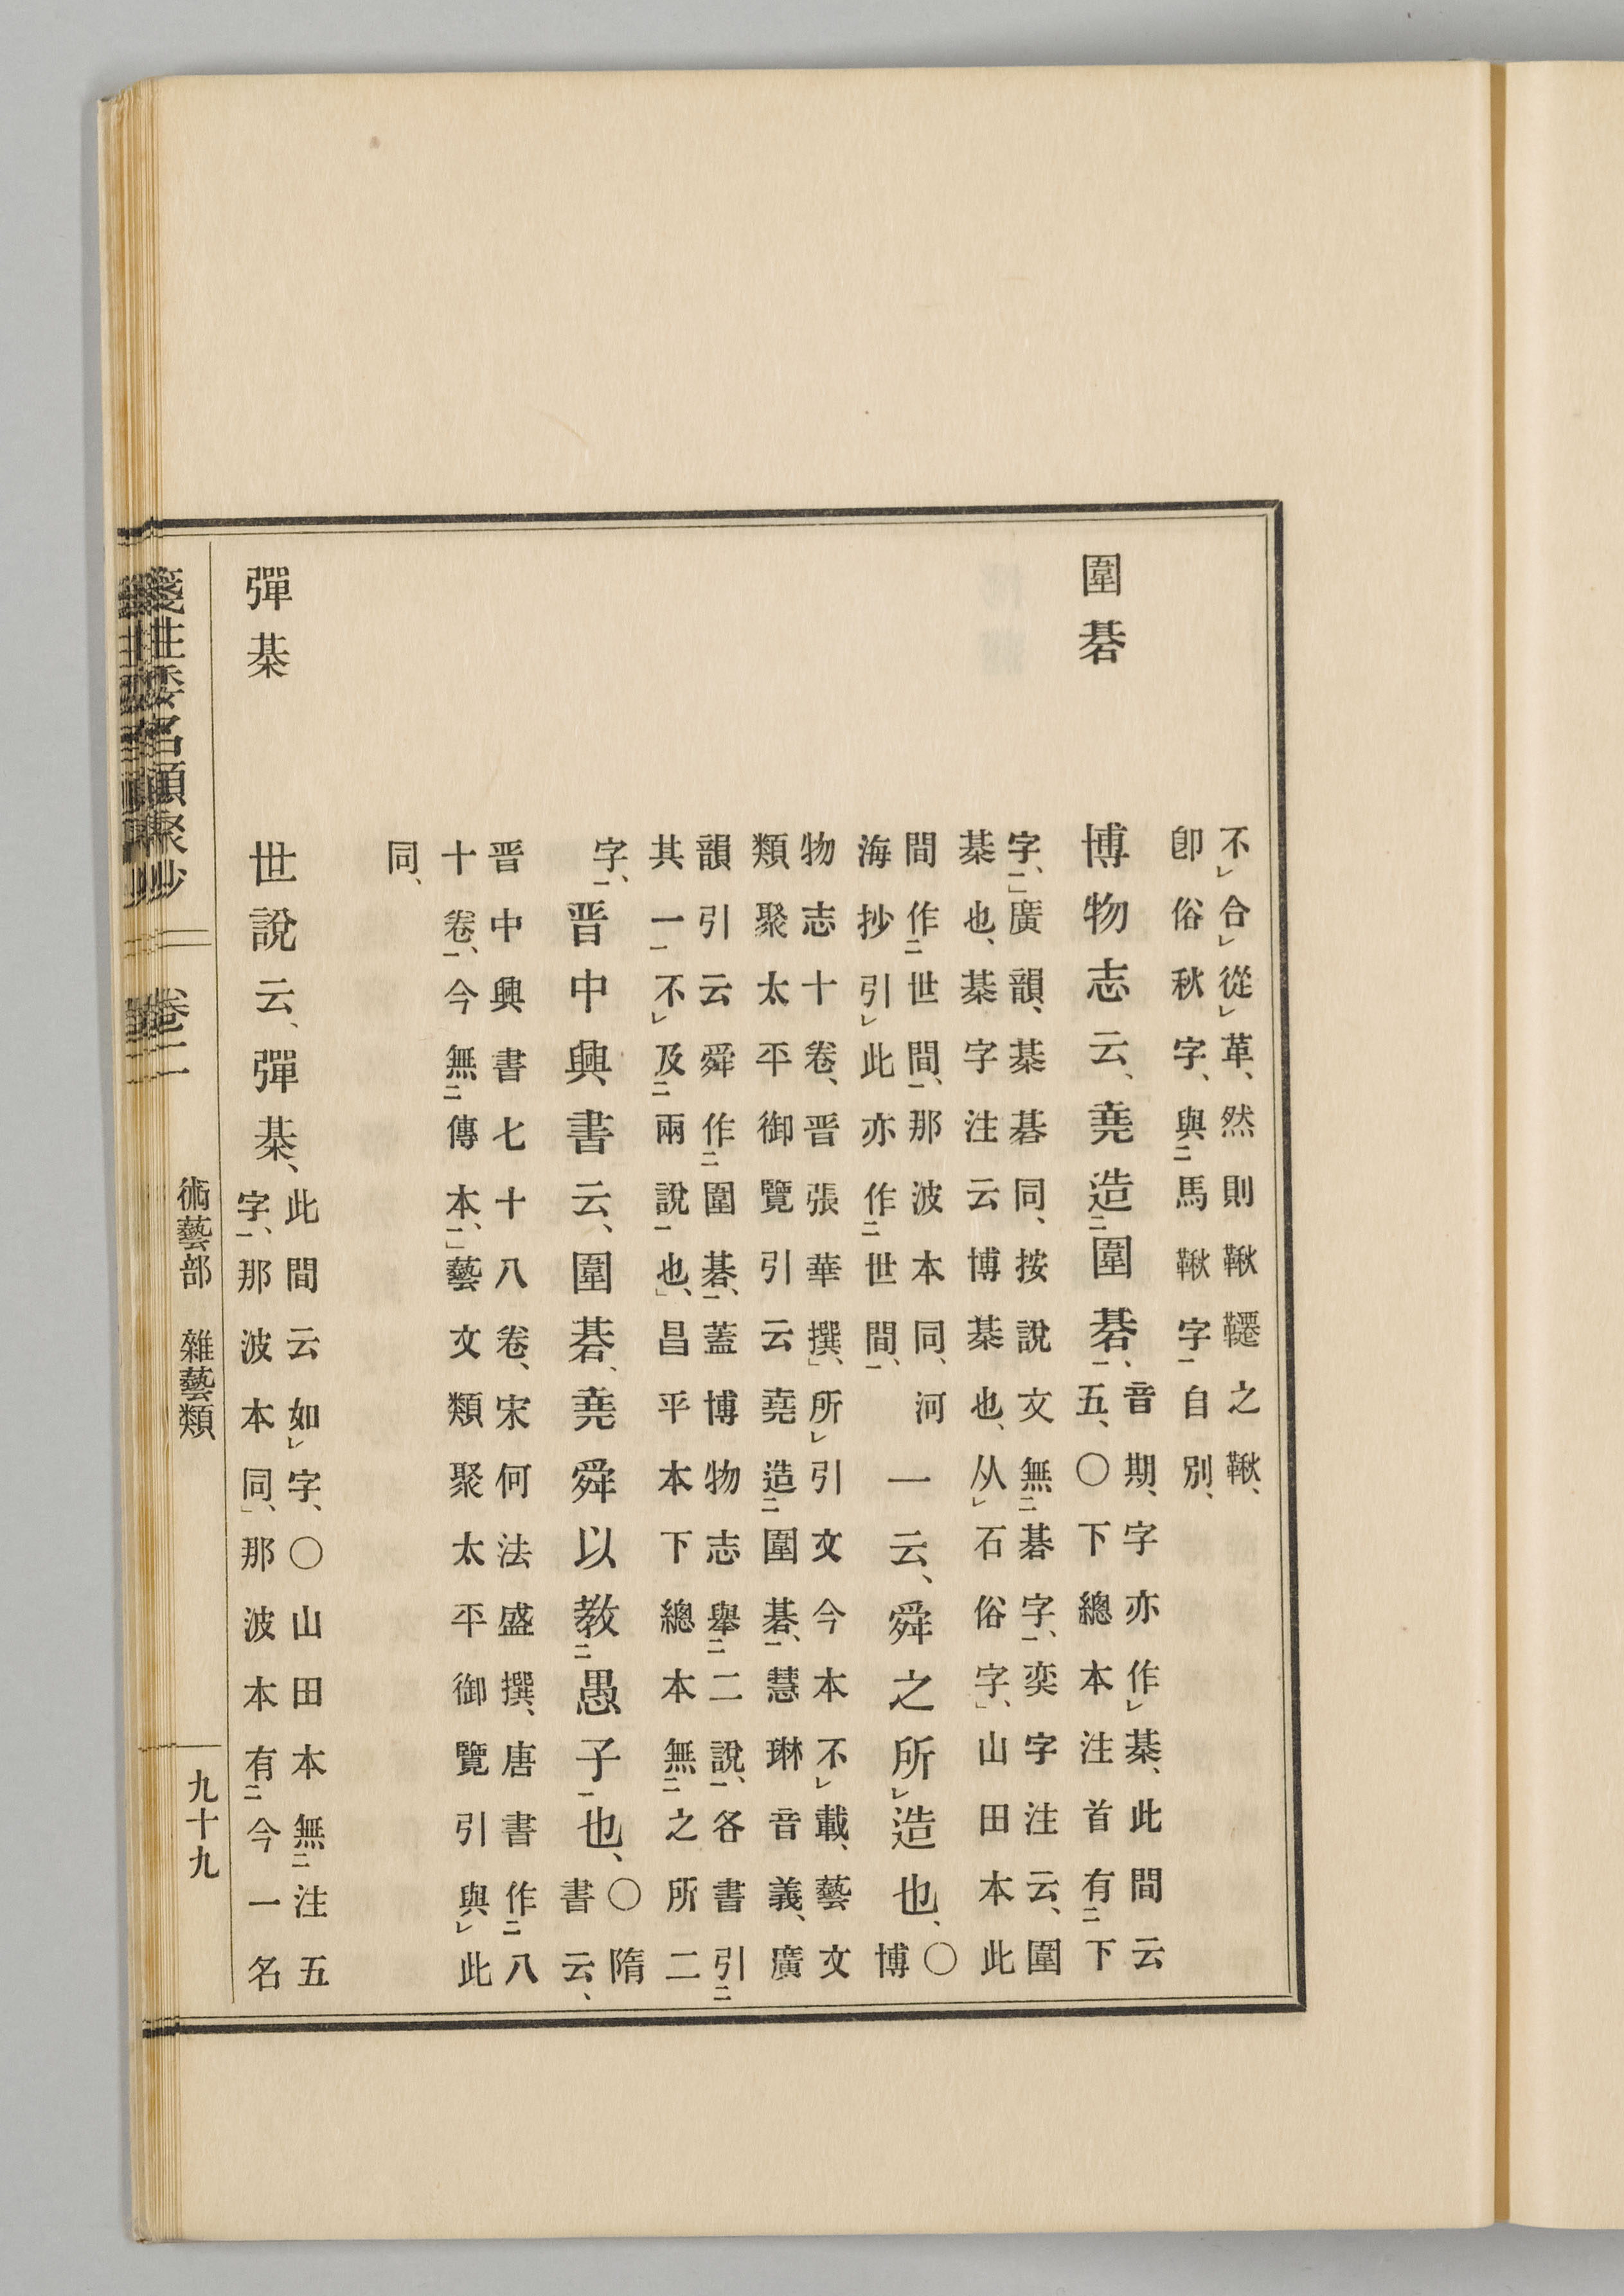 不レ合レ從レ革、然則鞦韆之鞦、
卽俗秋字、與二馬鞦字一自別、
圍碁
博物志云、堯造二圍碁一、
音期、字亦作レ棊、此間云
五、〇下總本注首有二下
字一、」廣韻、棊碁同、按說文無二碁字一、奕字注云、圍
棊也、棊字注云博棊也、从レ石俗字、」山田本此
間作二世間一、那波本同、河
海抄引レ此亦作二世間一、
一云、舜之所レ造也、
〇
博
物志十卷、晋張華撰、」所レ引文今本不レ載、藝文
類聚太平御覽引云堯造二圍碁一、慧琳音義、廣
韻引云舜作二圍碁一、蓋博物志擧二二說一、各書引二
其一一不レ及二兩說一也、」昌平本下總本無二之所二
字一、
晋中興書云、圍碁、堯舜以教二愚子一也、
〇隋
書云、
晋中興書七十八卷、宋何法盛撰、唐書作二八
十卷一、今無二傳本一、」藝文類聚太平御覽引與レ此
同、
彈棊
世說云、彈棊、
此間云如レ字、〇山田本無二注五
字一、那波本同、」那波本有二今一名
倭名類聚抄
卷二
術藝部 雜藝類
九十九